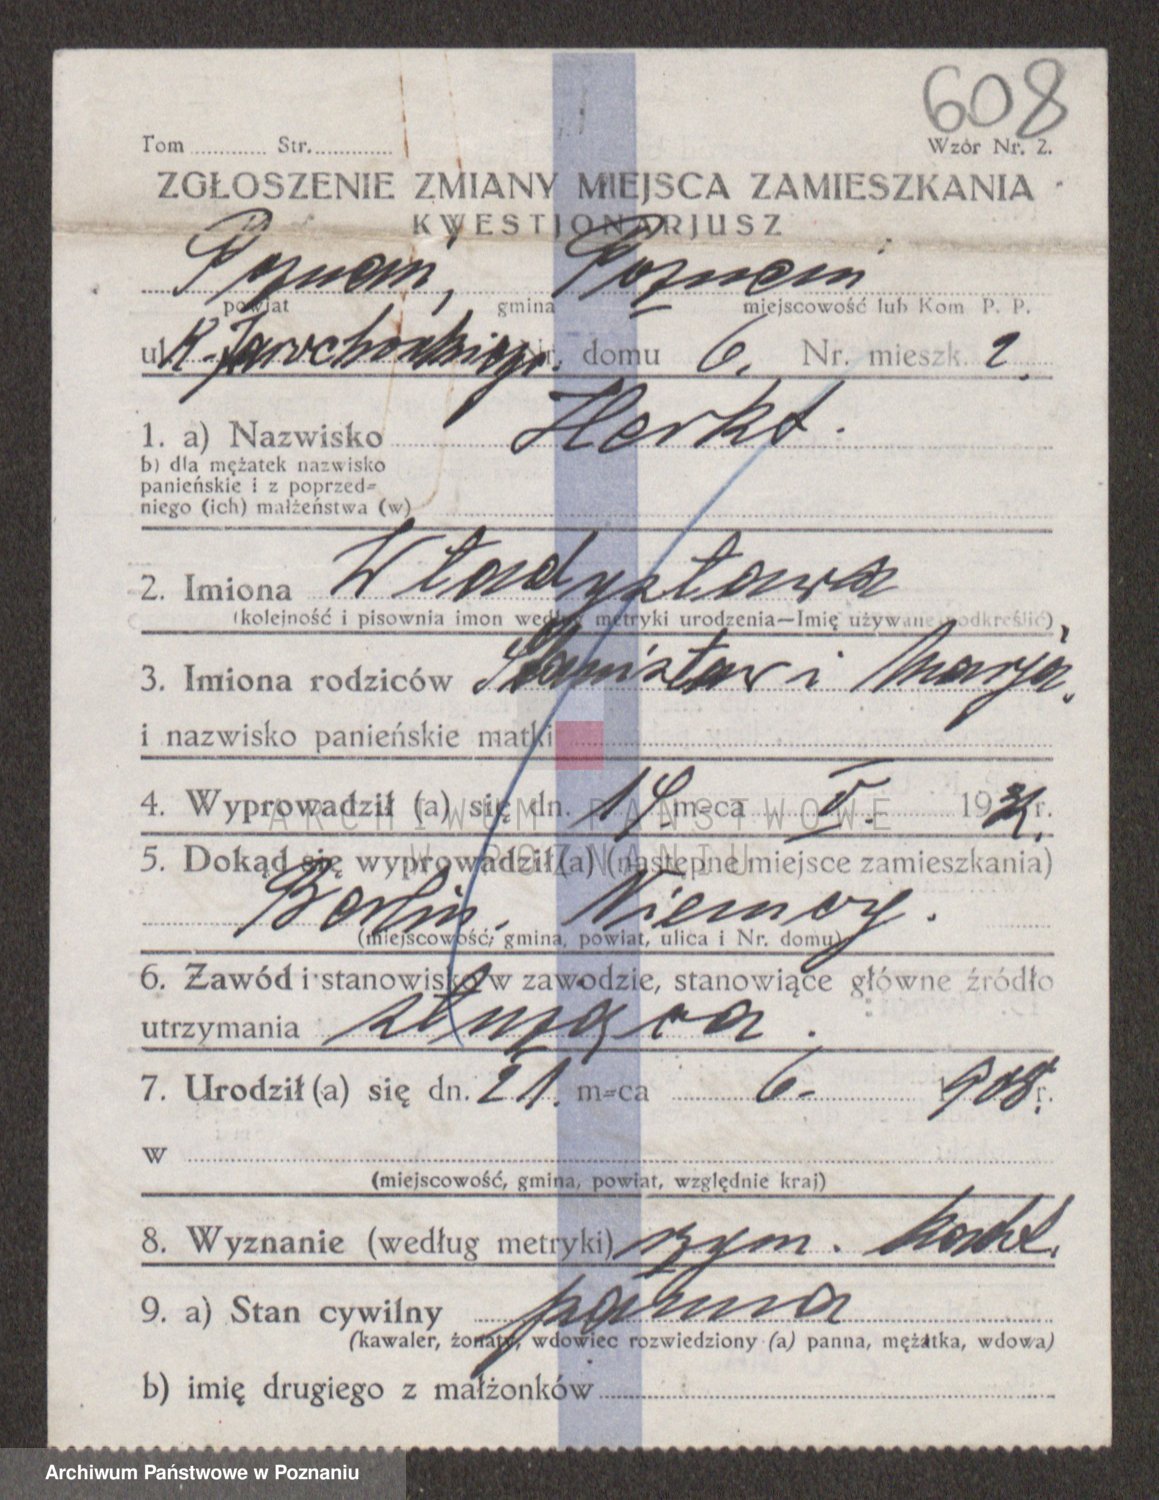 608
Tom ............ Str.............
Wzór Nr. 2.
ZGŁOSZENIE ZMIANY MIEJSCA ZAMIESZKANIA
KWESTJONARJUSZ
Poznań, Poznań
powiat gmina miejscowość lub Kom P. P.
ul. K. Jarochowskiego Nr. domu 6. Nr. mieszk. 2.
1. a) Nazwisko Herkt.
b) dla mężatek nazwisko
panieńskie i z poprzed=
niego (ich) małżeństwa (w)
2. Imiona Władysława
(kolejność i pisownia imon według metryki urodzenia—Imię używane podkreślić)
3. Imiona rodziców Stanisław i Marja.
i nazwisko panieńskie matki
4. Wyprowadził (a) się dn. 14. m=ca V. 19 r.
ARCHIWUM PAŃSTWOWE
W POZNANIU
5. Dokąd się wyprowadził(a) (następne miejsce zamieszkania)
Berlin, Niemcy.
(miejscowość, gmina, powiat, ulica i Nr. domu)
6. Zawód i stanowisko w zawodzie, stanowiące główne źródło
utrzymania służąca.
7. Urodził (a) się dn. 21. m=ca 6. 1908. r.
w
(miejscowość, gmina, powiat, względnie kraj)
8. Wyznanie (według metryki) rzym. katol.
9. a) Stan cywilny panna
(kawaler, żonaty, wdowiec rozwiedziony (a) panna, mężatka, wdowa)
b) imię drugiego z małżonków
Archiwum Państwowe w Poznaniu